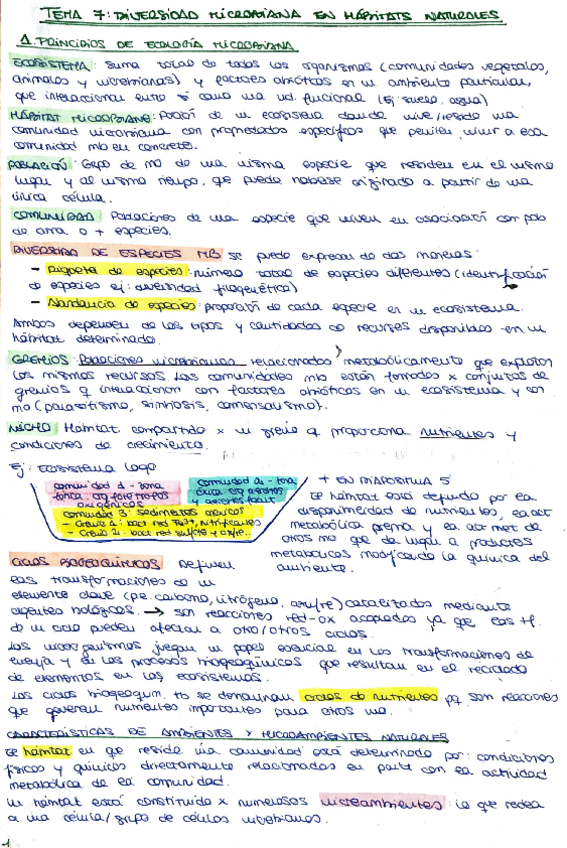 TEMA 7: DIVERSIDAD MICROBIANA EN HÁBITATS NATURALES
1. PRINCIPIOS DE ECOLOGÍA MICROBIANA
ECOSISTEMA: suma total de todos los organismos (comunidades vegetales,
animales y microbianas) y factores abióticos en un ambiente particular,
que interaccionan entre sí como una ud. funcional (ej: suelo, agua)
HÁBITAT MICROBIANO: Porción de un ecosistema donde vive/reside una
comunidad microbiana con propiedades específicas que permiten vivir a esa
comunidad mb en concreto.
POBLACIÓN: Grupo de mo de una misma especie que residen en el mismo
lugar y al mismo tiempo, que puede haberse originado a partir de una
única célula.
COMUNIDAD: Poblaciones de una especie que viven en asociación con pob
de otra o + especies.
DIVERSIDAD DE ESPECIES MB se puede expresar de dos maneras:
- Riqueza de especies: número total de especies diferentes (identificación
de especies ej: diversidad filogenética)
- Abundancia de especies: proporción de cada especie en un ecosistema.
Ambos dependen de los tipos y cantidades de recursos disponibles en un
hábitat determinado.
GREMIOS: Poblaciones microbianas relacionadas metabólicamente que explotan
los mismos recursos. Las comunidades mb están formadas x conjuntos de
gremios q interaccionan con factores abióticos en un ecosistema y con
mo (parasitismo, simbiosis, comensalismo).
NICHO: Hábitat compartido x un gremio q proporciona nutrientes y
condiciones de crecimiento.
Ej: Ecosistema lago
comunidad 1 - zona
fótica: org fotótropos
oxigénicos
comunidad 2 - zona
óxica org aerobios
y aerobios facult
comunidad 3: sedimentos anóxicos
- Gremio 1: bact red Fe3+, nitrificantes
- Gremio 2: bact red sulfato y azufre..
+ EN DIAPOSITIVA 5
El hábitat está definido por la
disponibilidad de nutrientes, la act
metabólica propia y la act met de
otros mo que da lugar a productos
metabólicos modificando la química del
ambiente.
CICLOS BIOGEOQUÍMICOS Definen
las transformaciones de un
elemento clave (pe. carbono, nitrógeno, azufre) catalizados mediante
agentes biológicos. → son reacciones red-ox acopladas ya que las tf.
de un ciclo pueden afectar a otro/otros ciclos.
Los microorganismos juegan un papel esencial en las transformaciones de
energía y en los procesos biogeoquímicos que resultan en el reciclado
de elementos en los ecosistemas.
Los ciclos biogeoquím. tb se denominan ciclos de nutrientes pq son reacciones
que generan nutrientes importantes para otros mo.
CARACTERÍSTICAS DE AMBIENTES Y MICROAMBIENTES NATURALES
El hábitat en que reside una comunidad está determinado por: condiciones
físicas y químicas directamente relacionadas en parte con la actividad
metabólica de la comunidad.
Un hábitat está constituido x numerosos microambientes: lo que rodea
a una célula/grupo de células microbianas.
1